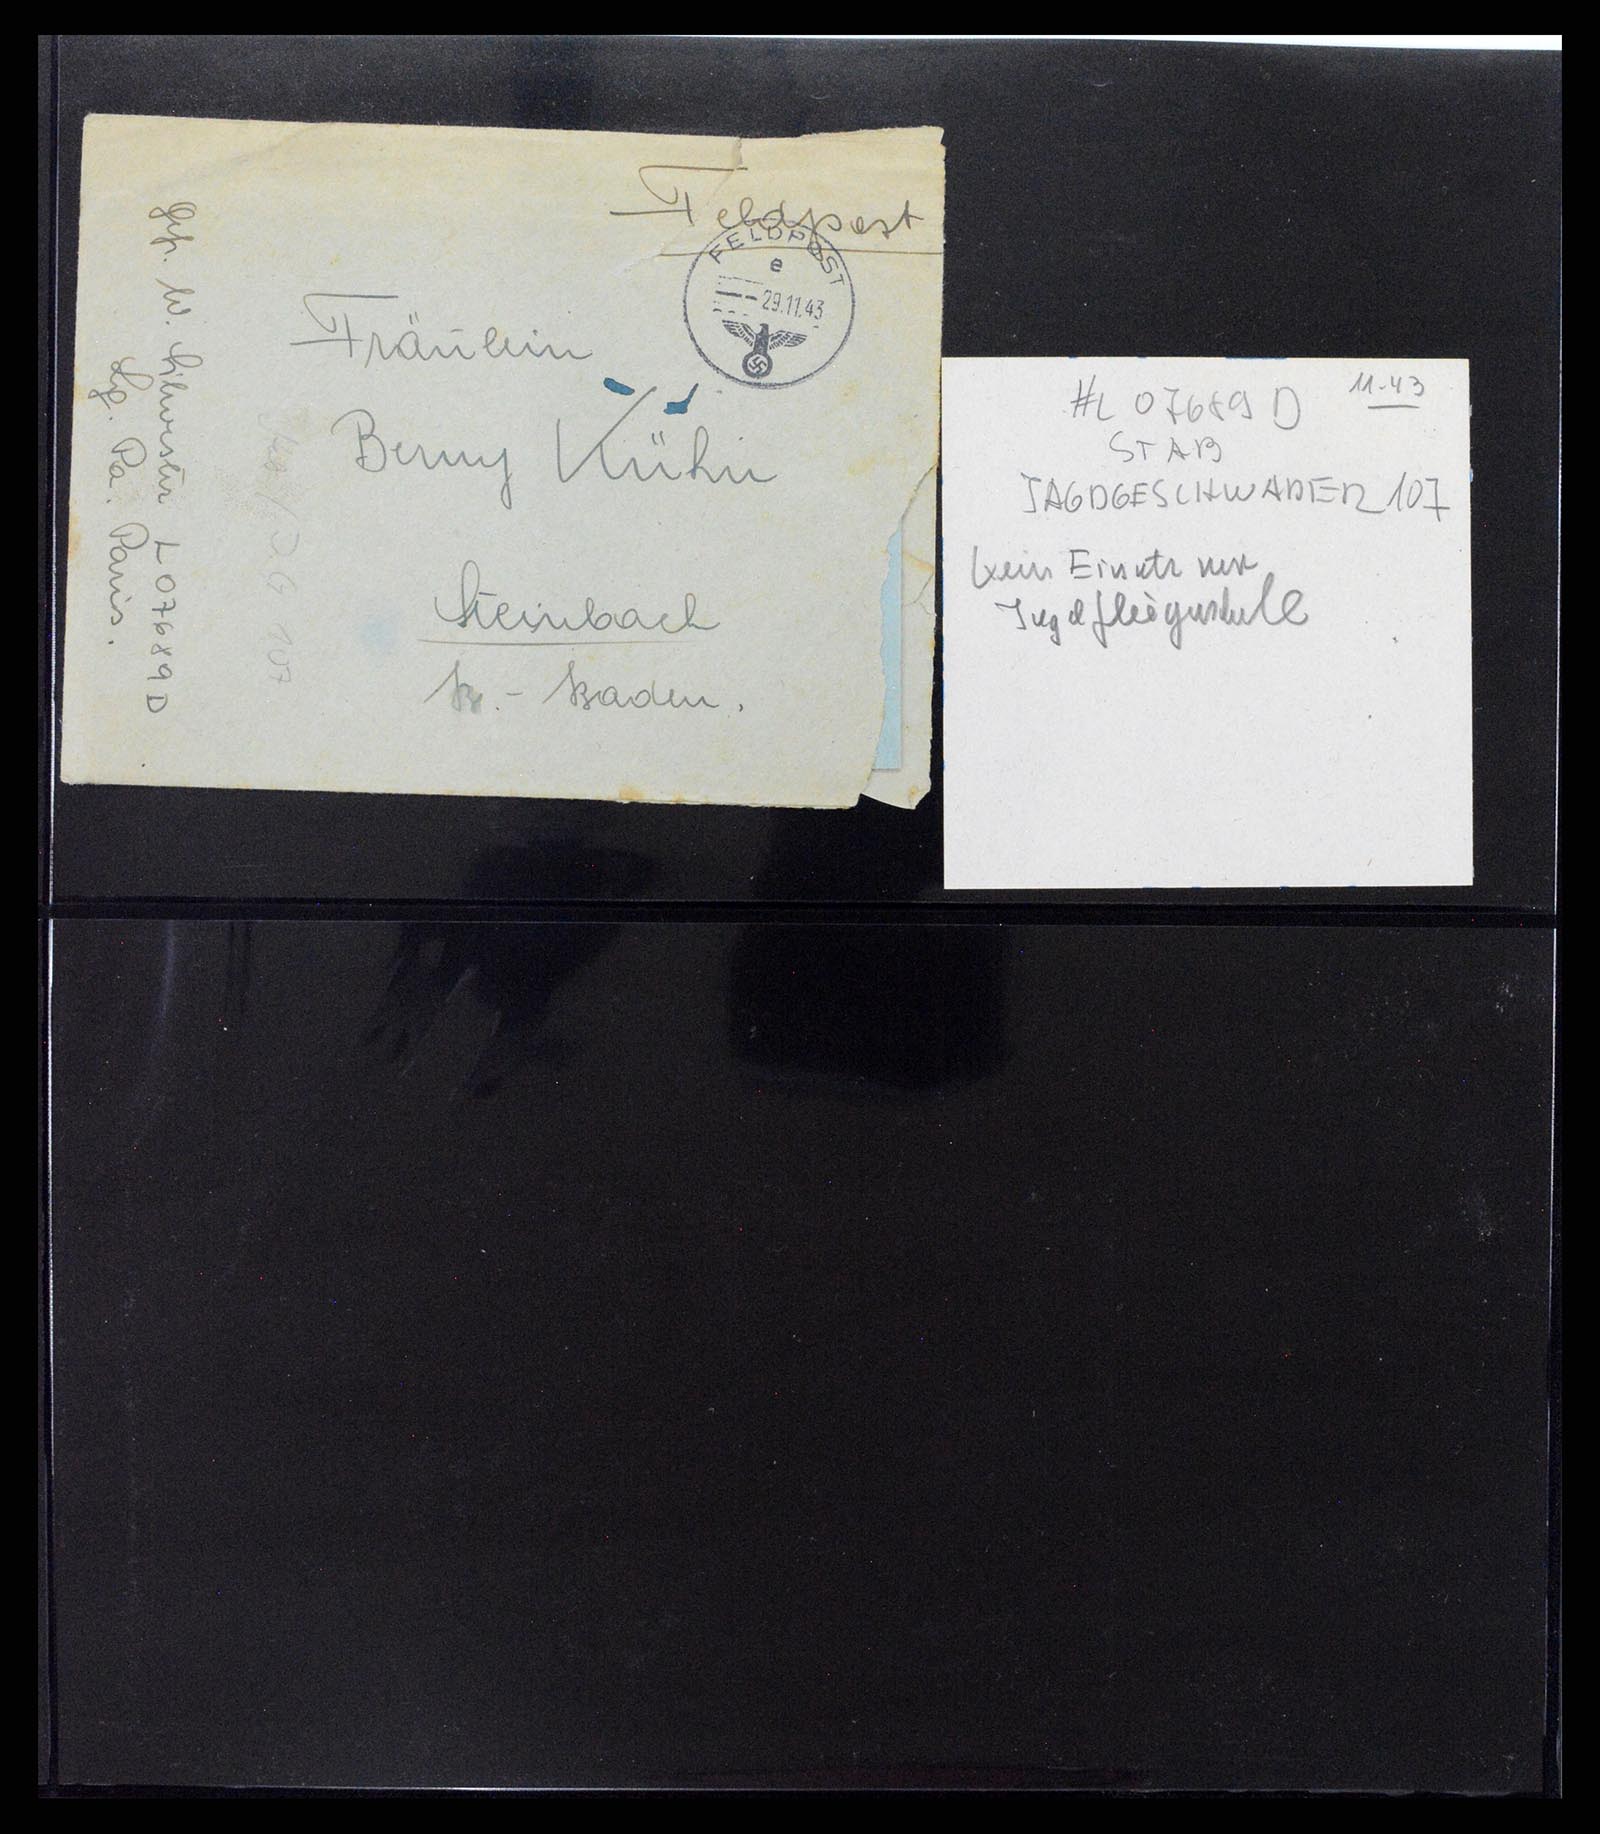 Feldpost
FELDPOST
e
29.11.43
Fräulein
Berny Kühn
Steinbach
B. - Baden.
Gefr. W. Silvester L 07689 D
Lg. Pa. Paris.
JG 107
11-43
#L 07689 D
STAB
JAGDGESCHWADER 107
kein Einsatz nur
Jagdfliegerschule